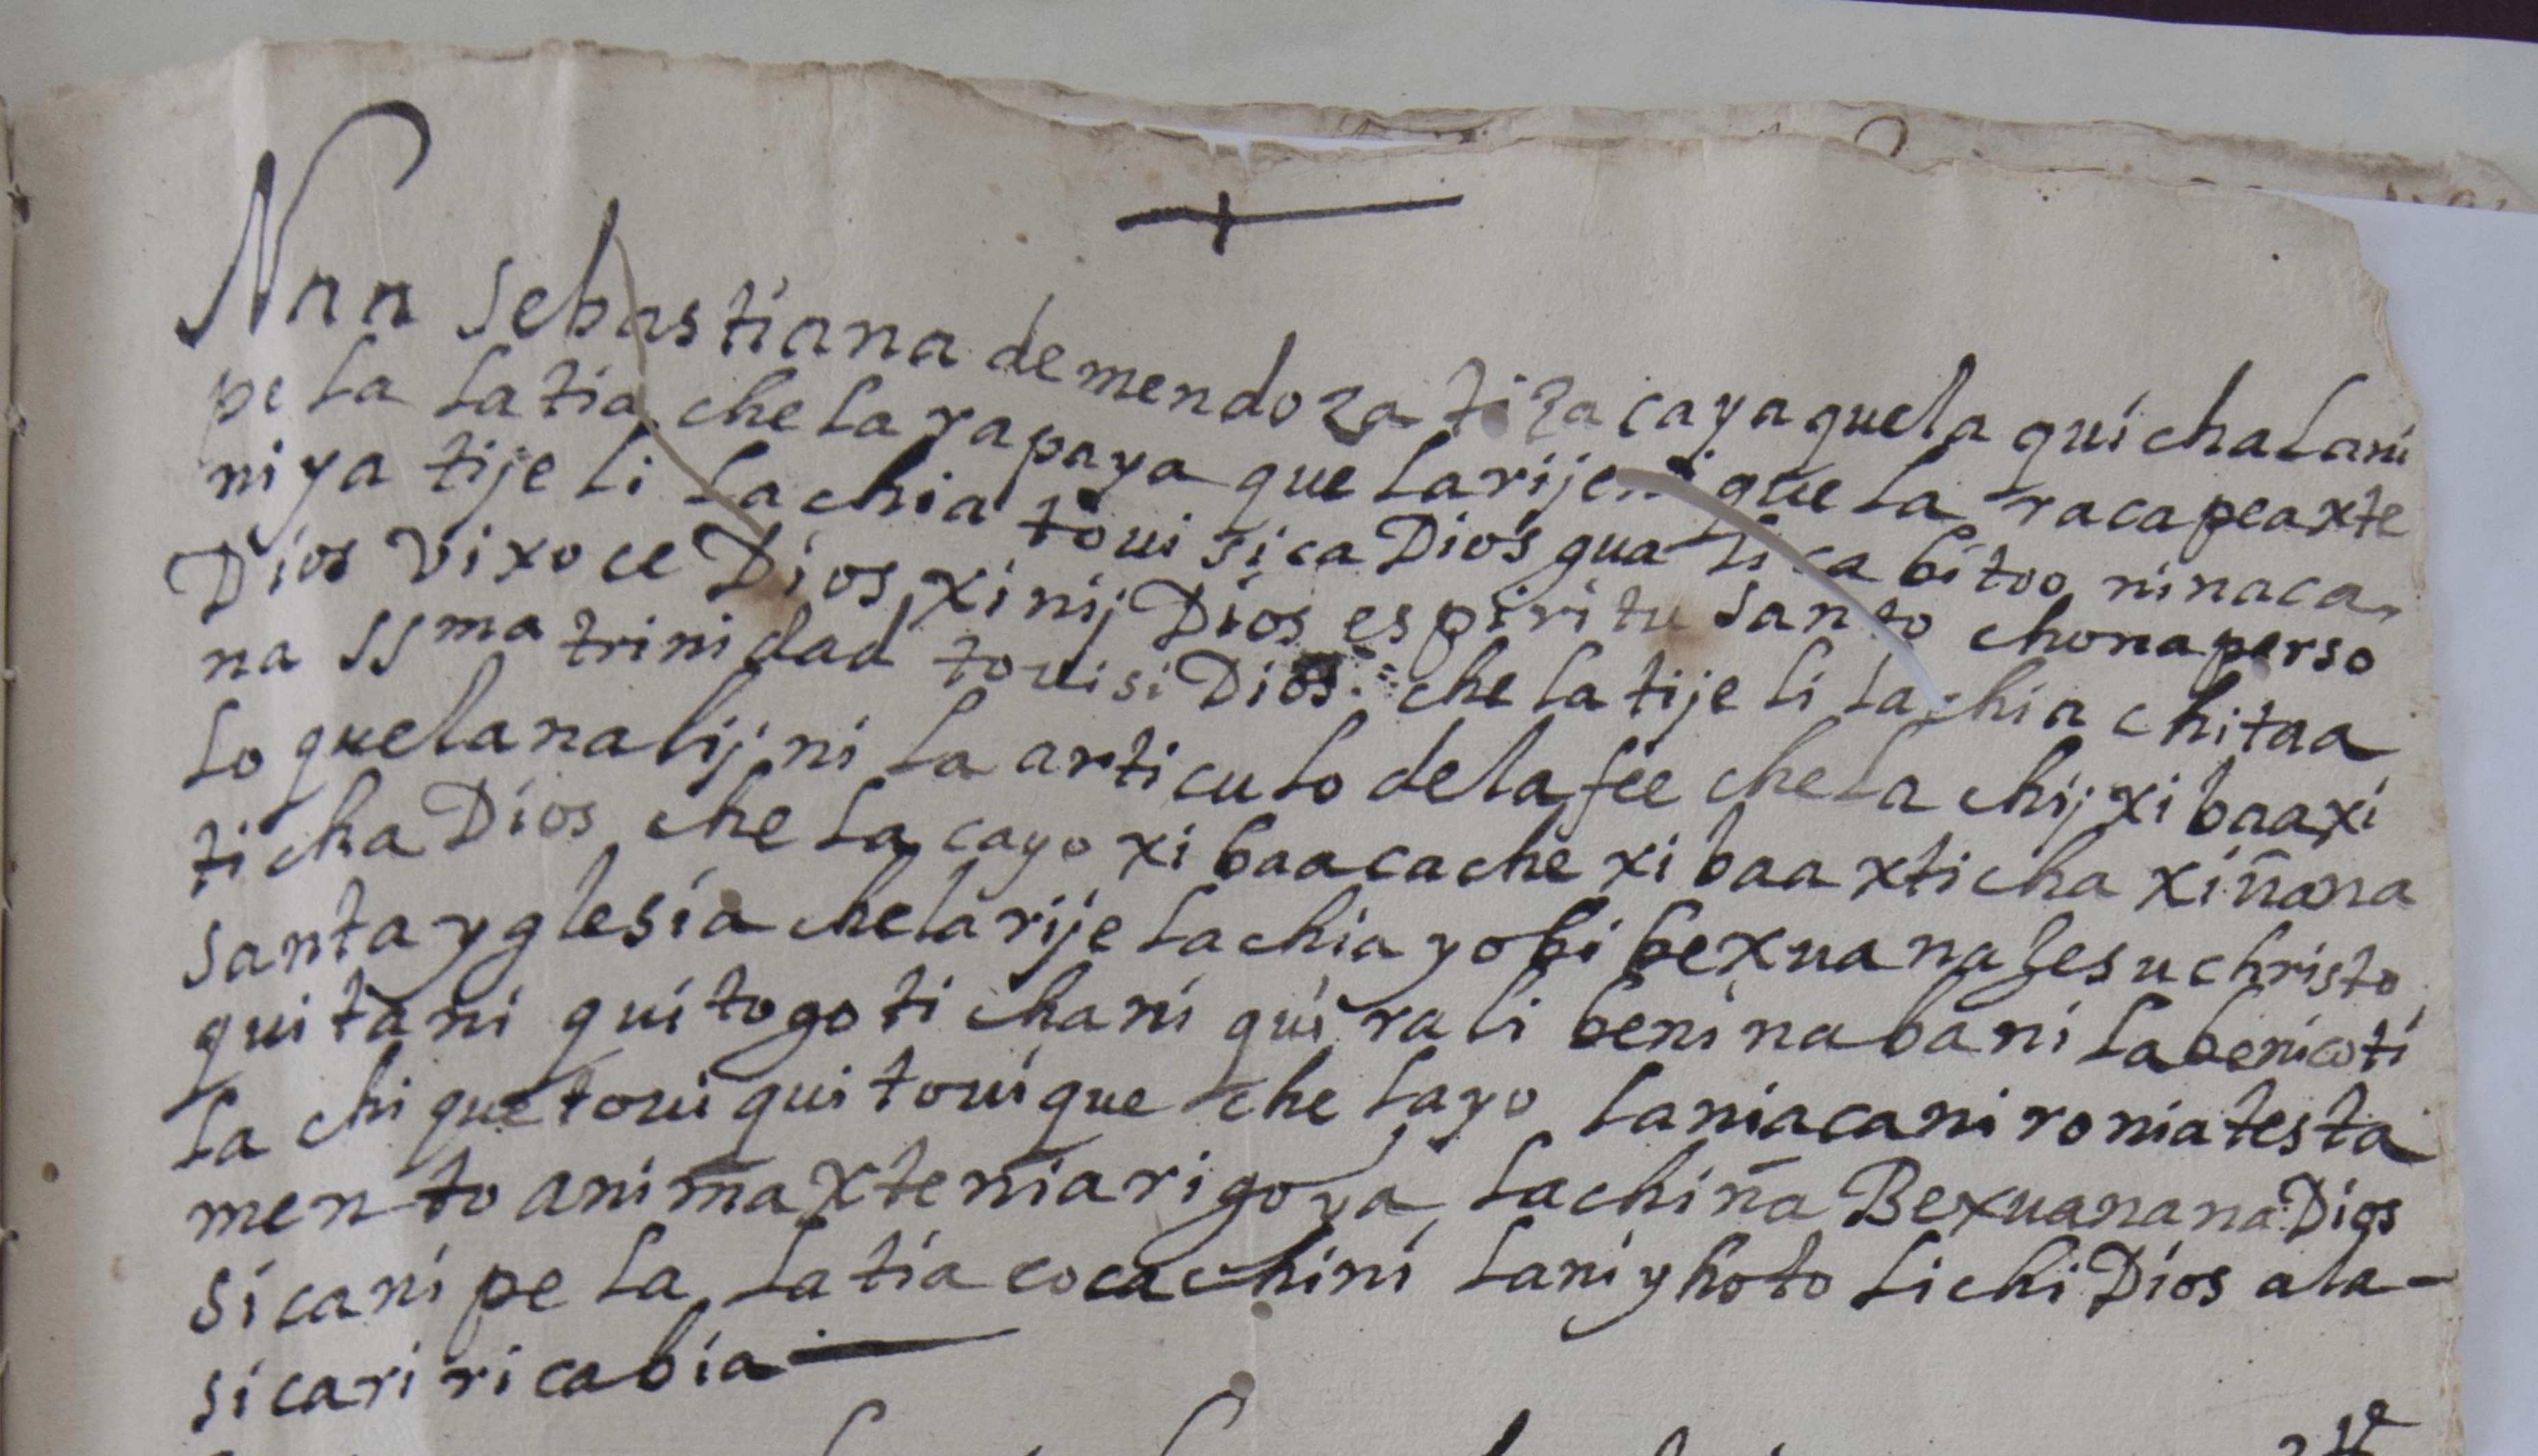 Naa sebastiana de mendoza tiza ca ya quela quicha Lani
pe La La tia che La rapaya que La rijeni que La raca peaxte
ni ya tije Li Lachia toui si ca Dios gua Li ca bitoo ninaca
Dios Vixoce Dios xinij Dios espiritu santo chona perso
na ssma trinidad touisi Dios che La tije Li Lachia chitaa
Lo quela nalij ni La articulo de la fee che La chij xibaa xi
ticha Dios che La cayo xibaa cache xibaa xticha xiñana
santa yglesia chela rije Lachia yobi bexuana Jesu christo
quitani quitogo tichani quirali beni nabani La beni coti
La chi que toui qui toui que che La yo Laniacani ronia testa
mento anima xtenia rigoya Lachiña Bexuanana Dios
sicani pe La La tia cocachini Lani yhoto Lichi Dios ala-
sicari ricabia